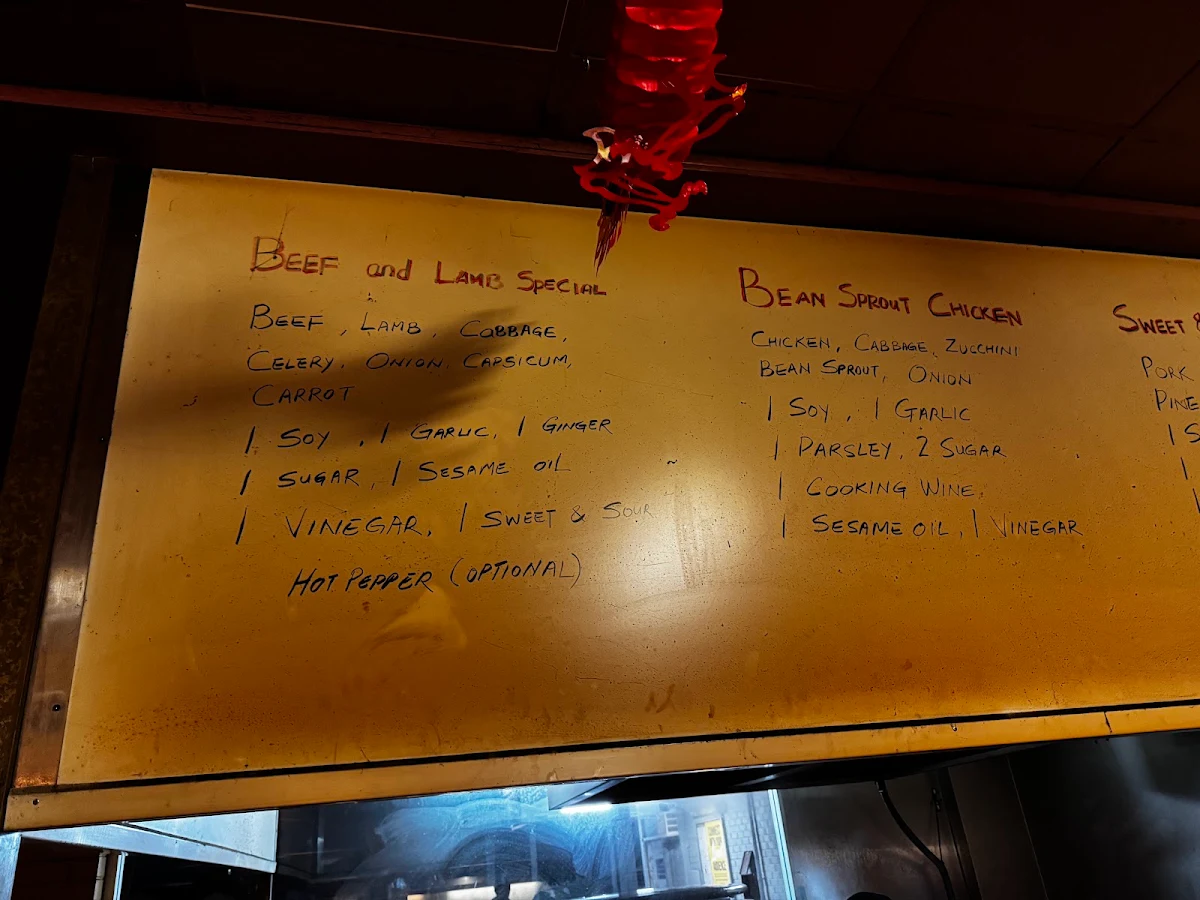 BEEF and LAMB SPECIAL
BEEF, LAMB, CABBAGE,
CELERY, ONION, CAPSICUM,
CARROT
1 SOY, 1 GARLIC, 1 GINGER
1 SUGAR, 1 SESAME OIL
1 VINEGAR, 1 SWEET & SOUR
HOT PEPPER (OPTIONAL)
BEAN SPROUT CHICKEN
CHICKEN, CABBAGE, ZUCCHINI
BEAN SPROUT, ONION
1 SOY, 1 GARLIC
1 PARSLEY, 2 SUGAR
1 COOKING WINE,
1 SESAME OIL, 1 VINEGAR
SWEET
PORK
PINE
1 S
1